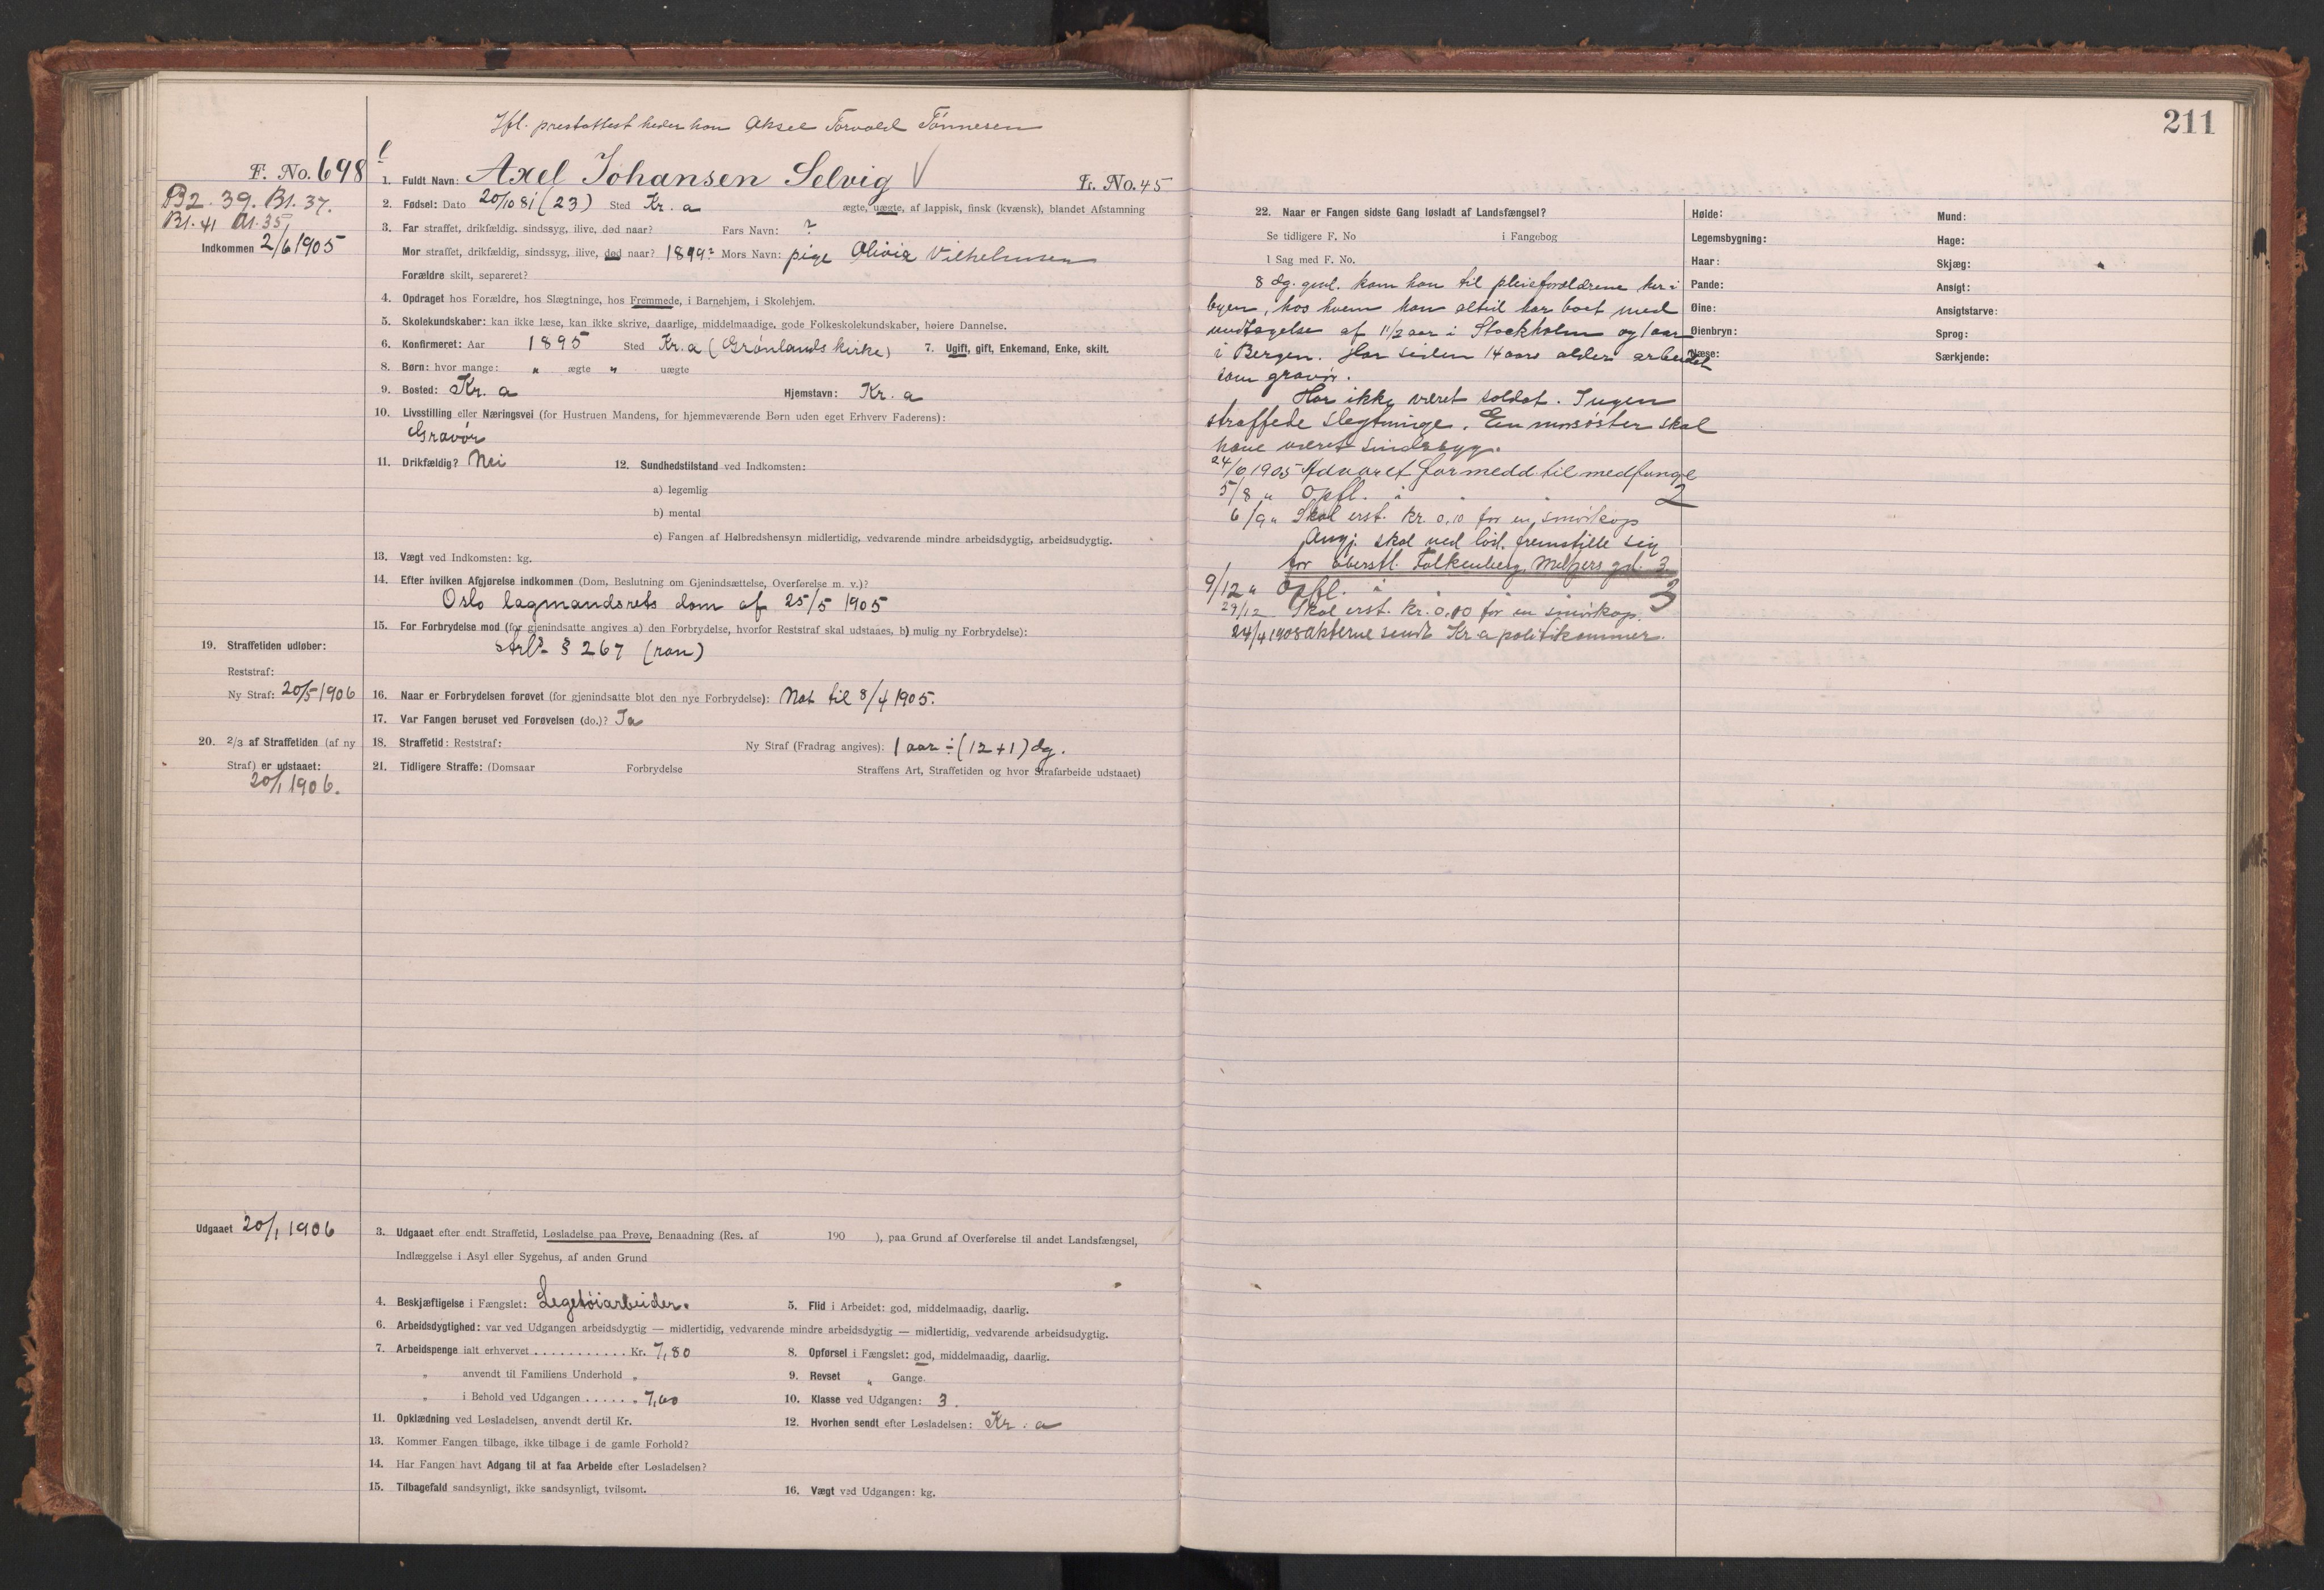 211
Ifl. prestattest heder han Aksel Torvald Tønnesen
F. No. 698
B2. 39. B1. 37.
B1. 41 A1. 35,
Indkommen 2/6 1905
1. Fuldt Navn: Axel Johansen Selvig Fr. No. 45
2. Fødsel: Dato 20/10 81 (23) Sted Kr. a ægte, uægte, af lappisk, finsk (kvænsk), blandet Afstamning
3. Far straffet, drikfældig, sindssyg, ilive, død naar? Fars Navn: ?
Mor straffet, drikfældig, sindssyg, ilive, død naar? 1899? Mors Navn: pige Olivia Vilhelmsen
Forældre skilt, separeret?
4. Opdraget hos Forældre, hos Slægtninge, hos Fremmede, i Barnehjem, i Skolehjem.
5. Skolekundskaber: kan ikke læse, kan ikke skrive, daarlige, middelmaadige, gode Folkeskolekundskaber, høiere Dannelse.
6. Konfirmeret: Aar 1895 Sted Kr. a (Grønlands kirke) 7. Ugift, gift, Enkemand, Enke, skilt.
8. Børn: hvor mange: " ægte " uægte
9. Bosted: Kr. a Hjemstavn: Kr. a
10. Livsstilling eller Næringsvei (for Hustruen Mandens, for hjemmeværende Børn uden eget Erhverv Faderens):
Gravør
11. Drikfældig? Nei 12. Sundhedstilstand ved Indkomsten:
a) legemlig
b) mental
c) Fangen af Helbredshensyn midlertidig, vedvarende mindre arbeidsdygtig, arbeidsudygtig.
13. Vægt ved Indkomsten: kg.
14. Efter hvilken Afgjørelse indkommen (Dom, Beslutning om Gjenindsættelse, Overførelse m. v.)?
Oslo lagmandsrets dom af 25/5 1905
15. For Forbrydelse mod (for gjenindsatte angives a) den Forbrydelse, hvorfor Reststraf skal udstaaes, b) mulig ny Forbrydelse):
Strl § 267 (ran)
19. Straffetiden udløber:
Reststraf:
Ny Straf: 20/5 1906
16. Naar er Forbrydelsen forøvet (for gjenindsatte blot den nye Forbrydelse): Nat til 8/4 1905.
17. Var Fangen beruset ved Forøvelsen (do.)? Ja
20. 2/3 af Straffetiden (af ny
Straf) er udstaaet:
20/1 1906.
18. Straffetid: Reststraf: Ny Straf (Fradrag angives): 1 aar ÷ (12 + 1) dg.
21. Tidligere Straffe: (Domsaar Forbrydelse Straffens Art, Straffetiden og hvor Strafarbeide udstaaet)
Udgaaet 20/1 1906
3. Udgaaet efter endt Straffetid, Løsladelse paa Prøve, Benaadning (Res. af 190 ), paa Grund af Overførelse til andet Landsfængsel,
Indlæggelse i Asyl eller Sygehus, af anden Grund
4. Beskjæftigelse i Fængslet: Legetøiarbeider. 5. Flid i Arbeidet: god, middelmaadig, daarlig.
6. Arbeidsdygtighed: var ved Udgangen arbeidsdygtig — midlertidig, vedvarende mindre arbeidsdygtig — midlertidig, vedvarende arbeidsudygtig.
7. Arbeidspenge ialt erhvervet ........... Kr. 7,80 8. Opførsel i Fængslet: god, middelmaadig, daarlig.
" anvendt til Familiens Underhold " 9. Revset " Gange.
" i Behold ved Udgangen ...... " 7,60 10. Klasse ved Udgangen: 3.
11. Opklædning ved Løsladelsen, anvendt dertil Kr. 12. Hvorhen sendt efter Løsladelsen: Kr. a
13. Kommer Fangen tilbage, ikke tilbage i de gamle Forhold?
14. Har Fangen havt Adgang til at faa Arbeide efter Løsladelsen?
15. Tilbagefald sandsynligt, ikke sandsynligt, tvilsomt. 16. Vægt ved Udgangen: kg.
22. Naar er Fangen sidste Gang løsladt af Landsfængsel?
Se tidligere F. No i Fangebog
I Sag med F. No.
8 dg. gml. kom han til pleieforældrene her i
byen, hos hvem han altid har boet med
undtagelse af 1 1/2 aar i Stockholm og 1 aar
i Bergen. Har siden 14 aars alder arbeidet
som gravør.
Har ikke været soldat. Ingen
straffede slegtninge. En morsøster skal
have været sindssyg.
24/6 1905 Advaret for medd. til medfange
5/8 " Opfl. i " " 2
6/9 " Skal erst. kr. 0,10 for en smørkop
Angj. skal ved løsl. fremstille sig
for oberstl. Falkenberg, Møllers gd. 3
9/12 " Opfl. i " " 3
29/12 Skal erst. kr. 0,10 for en smørkop.
24/4 1908 akterne sendt Kr. a politikammer.
Høide:
Legemsbygning:
Haar:
Pande:
Øine:
Øienbryn:
Næse:
Mund:
Hage:
Skjæg:
Ansigt:
Ansigtstarve:
Sprog:
Særkjende: